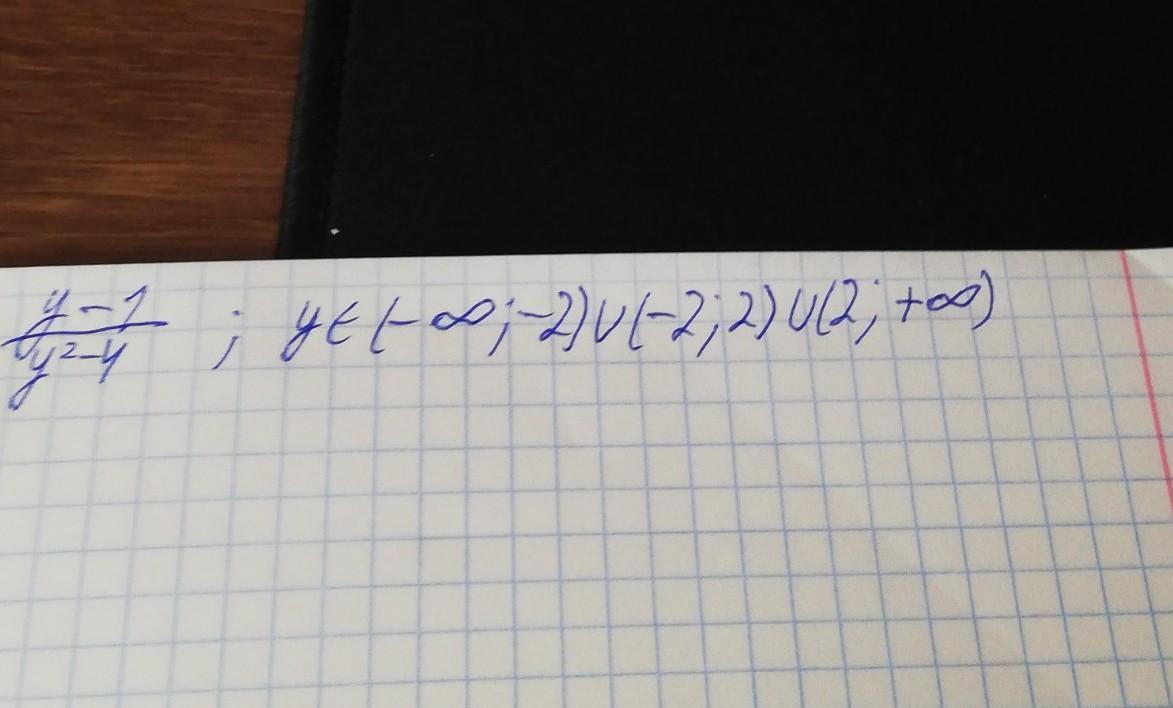 (y-1)/(y²-4) ; y∈(-∞;-2)∪(-2;2)∪(2;+∞)